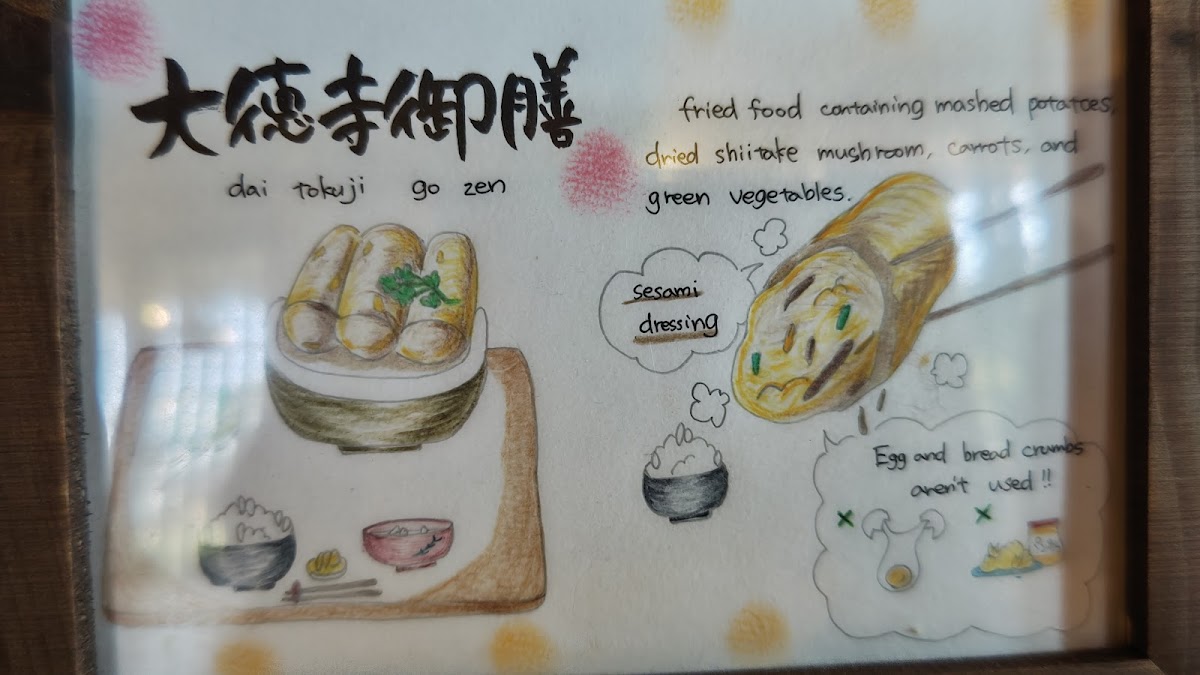 大徳寺御膳
dai tokuji go zen
fried food containing mashed potatoes,
dried shiitake mushroom, carrots, and
green vegetables.
sesami
dressing
Egg and bread crumbs
aren't used!!